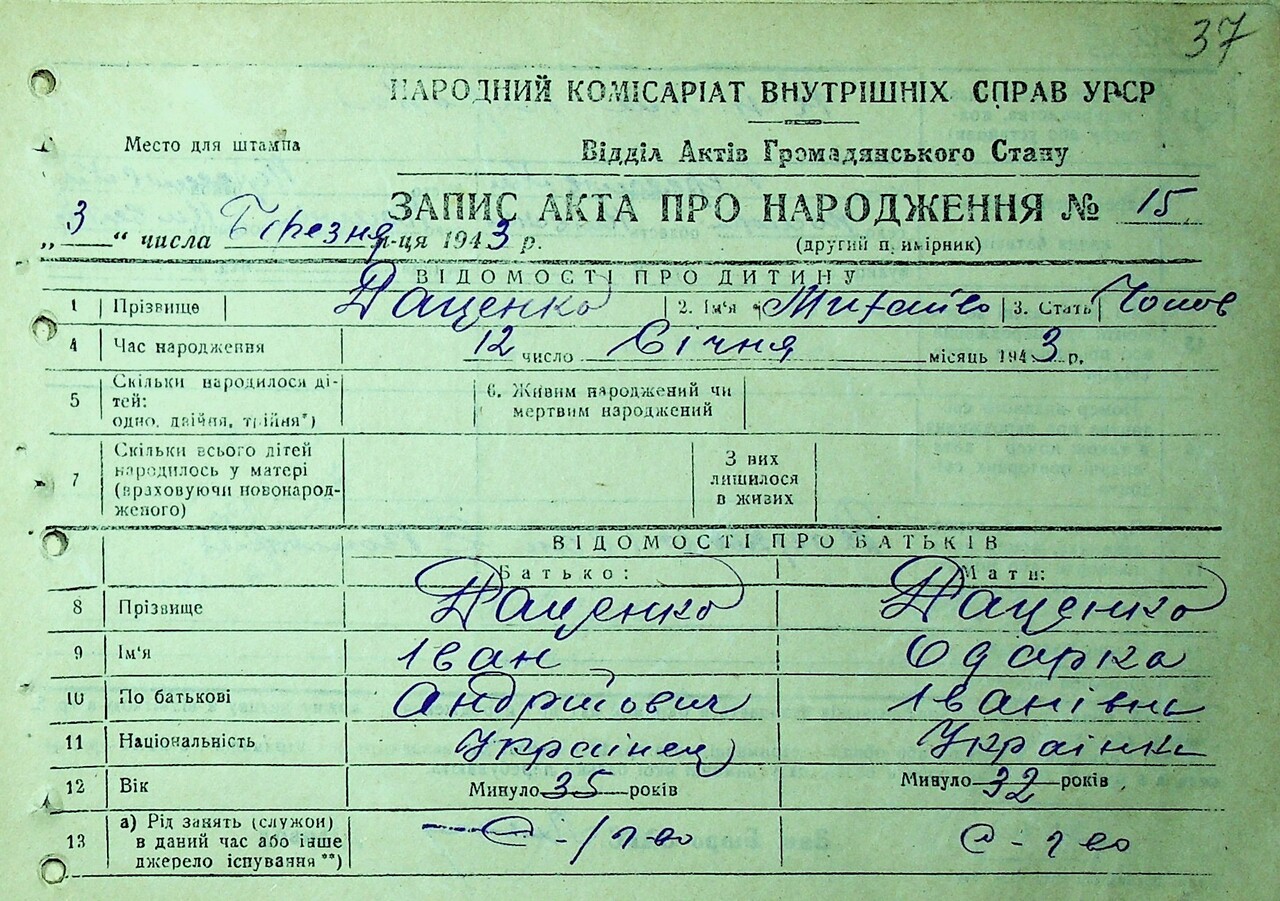 37
НАРОДНИЙ КОМІСАРІАТ ВНУТРІШНІХ СПРАВ УРСР
Место для штампа
Відділ Актів Громадянського Стану
ЗАПИС АКТА ПРО НАРОДЖЕННЯ № 15
„3“ числа Березня м-ця 1943 р.
(другий примірник)
ВІДОМОСТІ ПРО ДИТИНУ
1 Прізвище Даценко 2. Ім'я Михайло 3. Стать Чолов
4 Час народження 12 число Січня місяць 1943 р.
5 Скільки народилося ді-
тей:
одно, двійня, трійня*)
6. Живим народжений чи
мертвим народжений
7 Скільки всього дітей
народилось у матері
(враховуючи новонарод-
женого)
З них
лишилося
в живих
ВІДОМОСТІ ПРО БАТЬКІВ
Батько: Мати:
8 Прізвище Даценко Даценко
9 Ім'я Іван Одарка
10 По батькові Андрійович Іванівна
11 Національність Українец Українка
12 Вік Минуло 35 років Минуло 32 років
13 а) Рід занять (служби)
в даний час або інше
джерело існування **)
С-/г-во С-г во